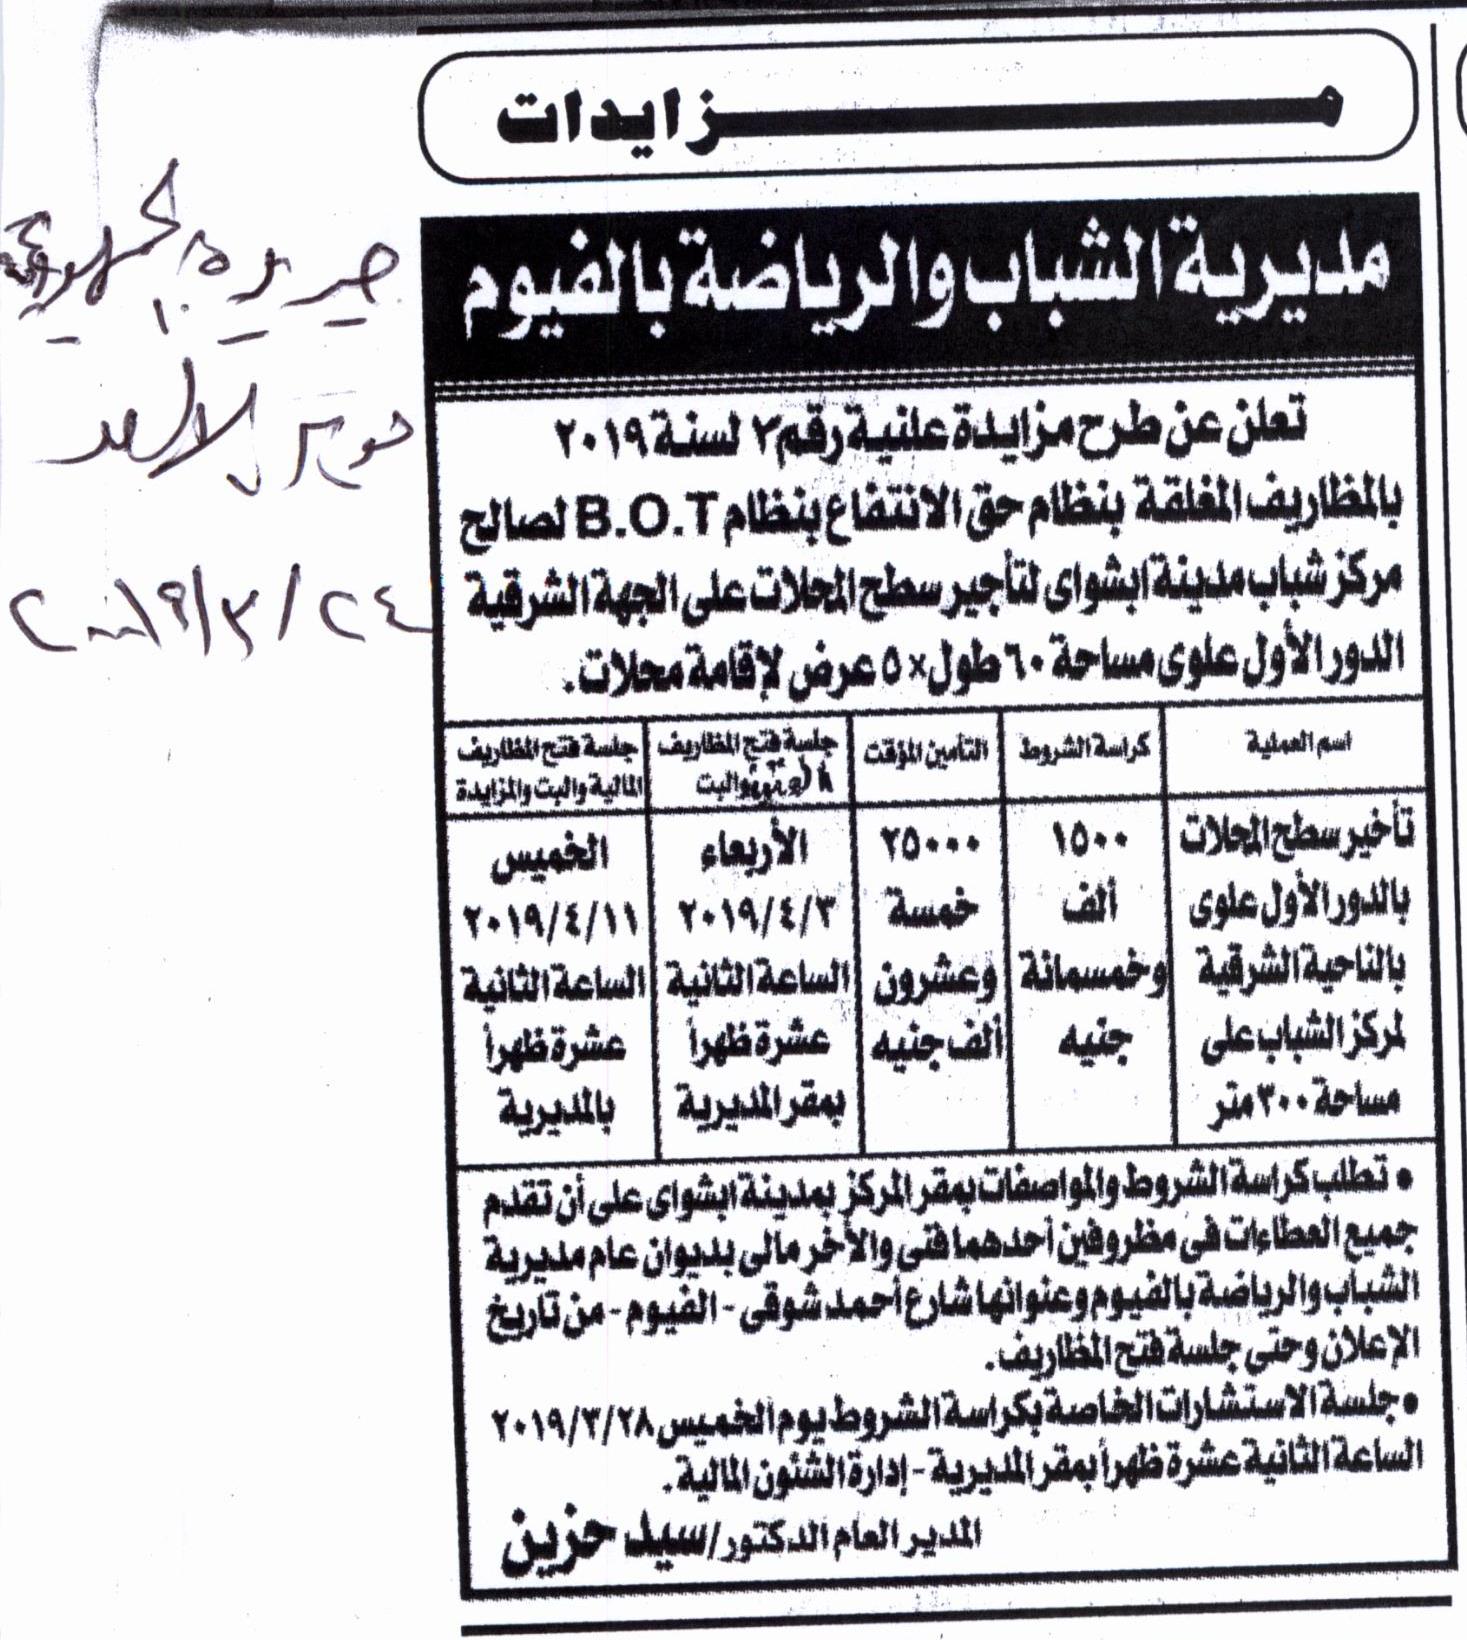 مزايدات
مديرية الشباب والرياضة بالفيوم
تعلن عن طرح مزايدة علنية رقم ٢ لسنة ٢٠١٩
بالمظاريف المغلقة بنظام حق الانتفاع بنظام B.O.T لصالح
مركز شباب مدينة ابشواى لتأجير سطح المحلات على الجهة الشرقية
الدور الأول علوى مساحة ٦٠ طول × ٥ عرض لإقامة محلات.
اسم العملية
كراسة الشروط
التأمين المؤقت
جلسة فتح المظاريف
والبت
جلسة فتح المظاريف
المالية والبت والمزايدة
تأخير سطح المحلات
بالدور الأول علوى
بالناحية الشرقية
لمركز الشباب على
مساحة ٣٠٠ متر
١٥٠٠
ألف
وخمسمائة
جنيه
٢٥٠٠٠
خمسة
وعشرون
ألف جنيه
الأربعاء
٢٠١٩/٤/٣
الساعة الثانية
عشرة ظهراً
بمقر المديرية
الخميس
٢٠١٩/٤/١١
الساعة الثانية
عشرة ظهراً
بالمديرية
• تطلب كراسة الشروط والمواصفات بمقر المركز بمدينة ابشواى على أن تقدم
جميع العطاءات فى مظروفين أحدهما فنى والأخر مالى بديوان عام مديرية
الشباب والرياضة بالفيوم وعنوانها شارع أحمد شوقى - الفيوم - من تاريخ
الإعلان وحتى جلسة فتح المظاريف.
• جلسة الاستشارات الخاصة بكراسة الشروط يوم الخميس ٢٠١٩/٣/٢٨
الساعة الثانية عشرة ظهراً بمقر المديرية - إدارة الشئون المالية.
المدير العام الدكتور/سيد حزين
جريدة الجمهورية
الاحد
٢٠١٩/٣/٢٤